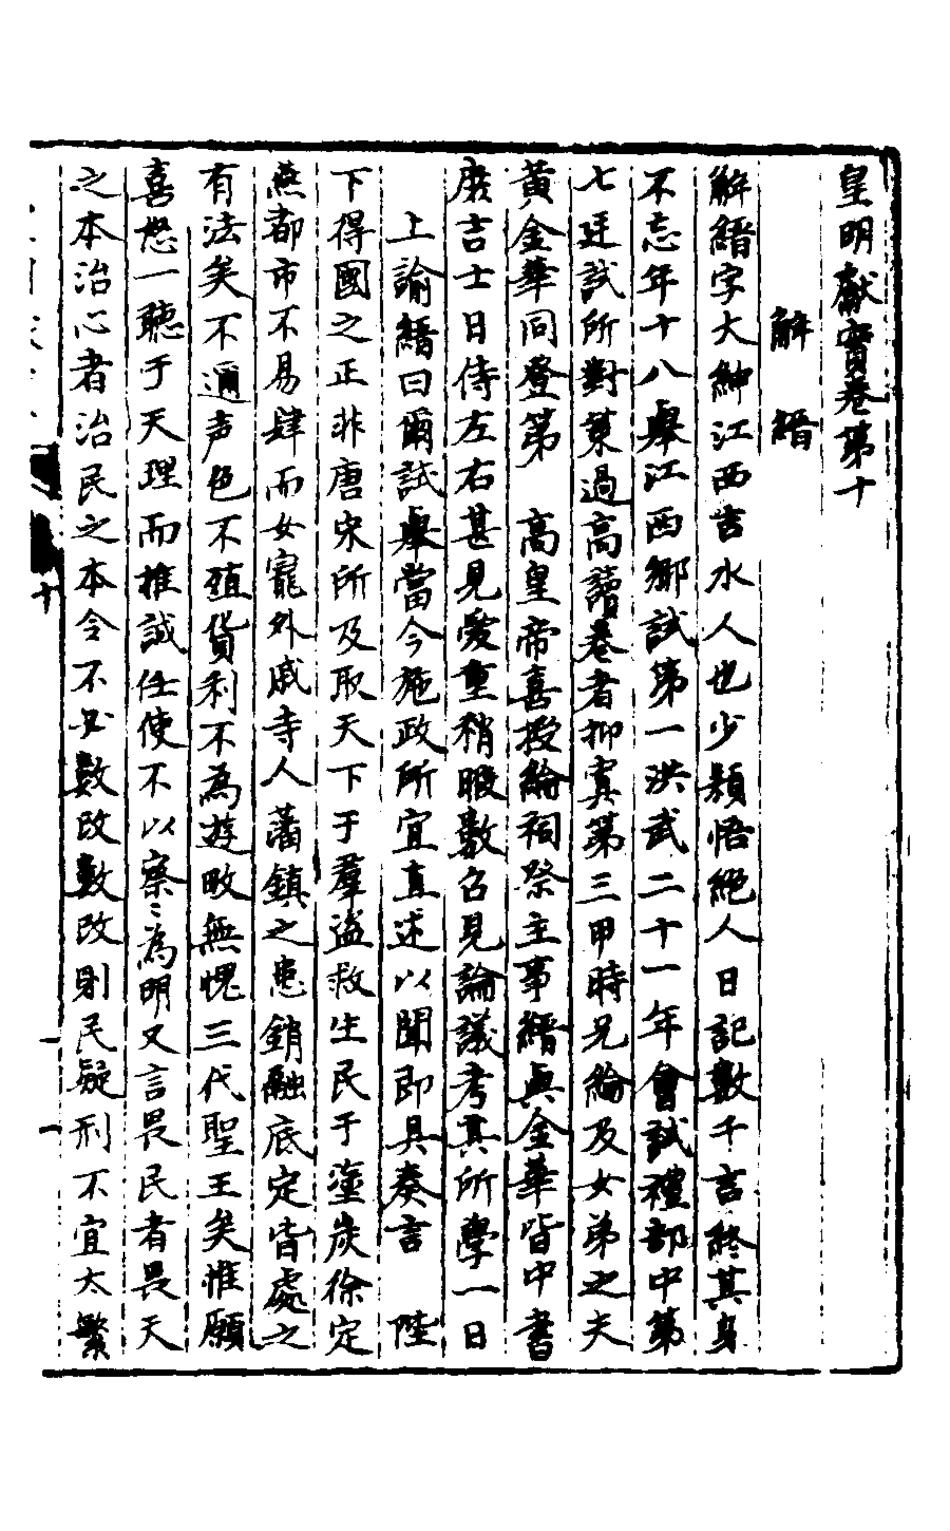 皇明獻實卷第十
解縉
解縉字大紳江西吉水人也少穎悟絕人日記數千言終其身
不忘年十八舉江西鄉試第一洪武二十一年會試禮部中第
七廷試所對策過高讀卷者抑寘第三甲時兄綸及女弟之夫
黃金華同登第 高皇帝喜授綸祠祭主事縉與金華皆中書
庶吉士日侍左右甚見愛重稍暇數召見論議考其所學一日
上諭縉曰爾試舉當今施政所宜直述以聞即具奏言 陛
下得國之正非唐宋所及取天下于羣盜救生民于塗炭徐定
燕都市不易肆而女寵外戚寺人藩鎮之患銷融底定皆處之
有法矣不邇声色不殖貨利不為遊畋無愧三代聖王矣惟願
喜怒一聽于天理而推誠任使不以察〻為明又言畏民者畏天
之本治心者治民之本令不必數改數改則民疑刑不宜太繁
十